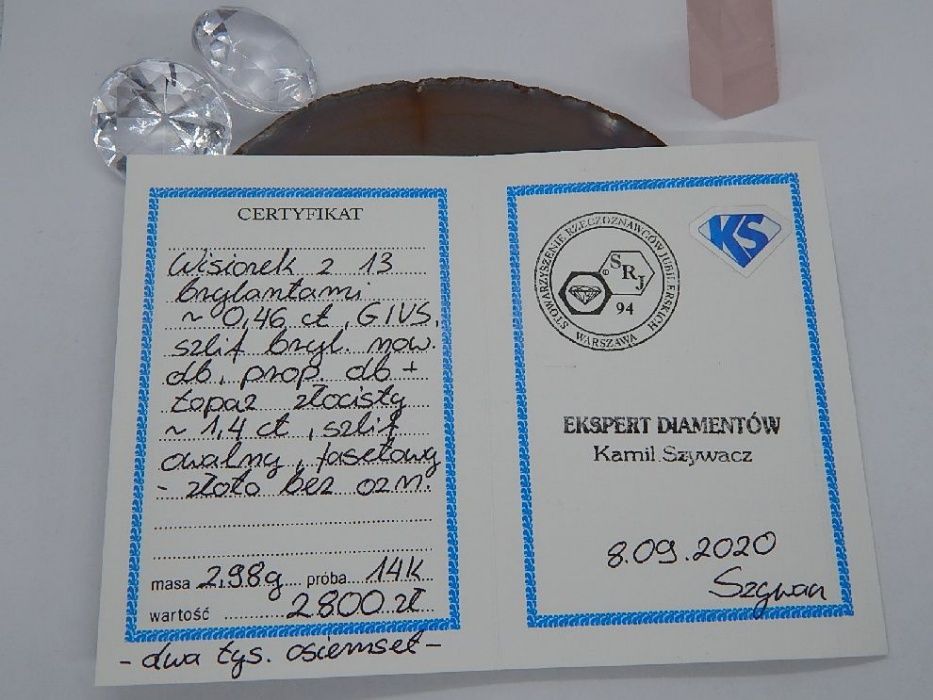 CERTYFIKAT
Wisiorek z 13
brylantami
~ 0,46 ct, G/VS,
szlif bryl. now.
db, prop. db +
topaz złocisty
~ 1,4 ct, szlif
owalny, fasetowy
- złoto bez ozn.
masa 2,98g próba 14K
wartość 2800 zł
- dwa tys. osiemset -
STOWARZYSZENIE RZECZOZNAWCÓW JUBILERSKICH
WARSZAWA
® SRJ
94
KS
EKSPERT DIAMENTÓW
Kamil Szywacz
8.09.2020